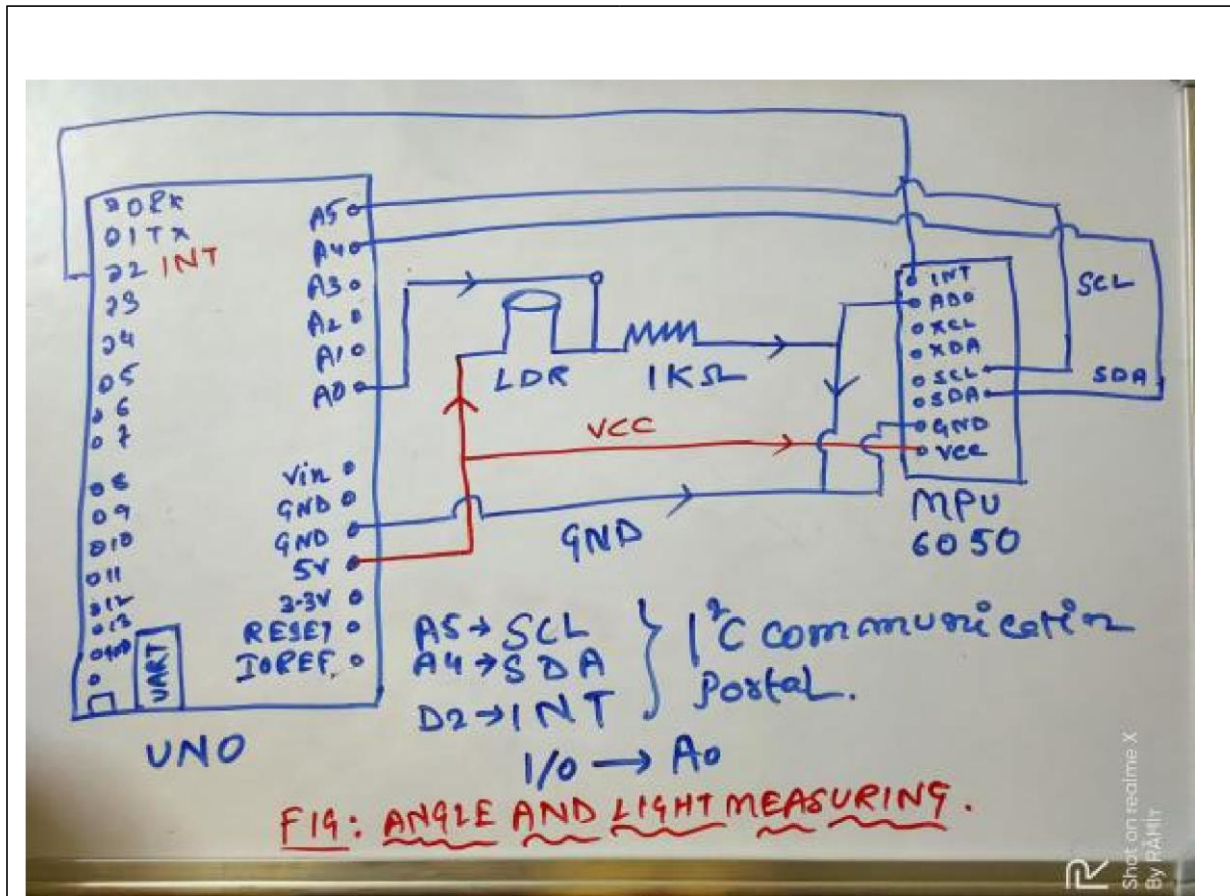 0RX
01TX
2 INT
3
4
05
6
07
08
09
010
011
012
013
GND
UART
A5
A4
A3
A2
A1
A0
Vin
GND
GND
5V
3.3V
RESET
IOREF
UNO
LDR
1KΩ
VCC
GND
INT
AD0
XCL
XDA
SCL
SDA
GND
VCC
MPU
6050
SCL
SDA
A5→SCL
A4→SDA
D2→INT
I²C communication
Portal.
I/O → A0
FIG: ANGLE AND LIGHT MEASURING.
Shot on realme X
By RĀMÍT